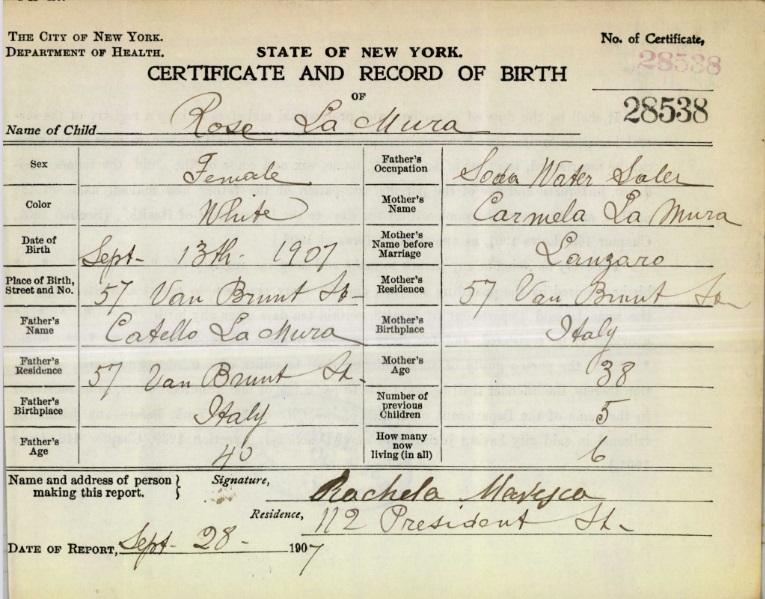 THE CITY OF NEW YORK.
DEPARTMENT OF HEALTH.
STATE OF NEW YORK.
No. of Certificate,
28538
CERTIFICATE AND RECORD OF BIRTH
OF
28538
Name of Child Rose La Mura
Sex Female
Father's Occupation Soda Water Saler
Color White
Mother's Name Carmela La Mura
Date of Birth Sept- 13th- 1907
Mother's Name before Marriage Lanzaro
Place of Birth, Street and No. 57 Van Brunt St-
Mother's Residence 57 Van Brunt St-
Father's Name Catello La Mura
Mother's Birthplace Italy
Father's Residence 57 Van Brunt St.
Mother's Age 38
Father's Birthplace Italy
Number of previous Children 5
Father's Age 40
How many now living (in all) 6
Name and address of person making this report.
Signature, Rachela Maresca
Residence, 112 President St-
DATE OF REPORT, Sept- 28- 1907